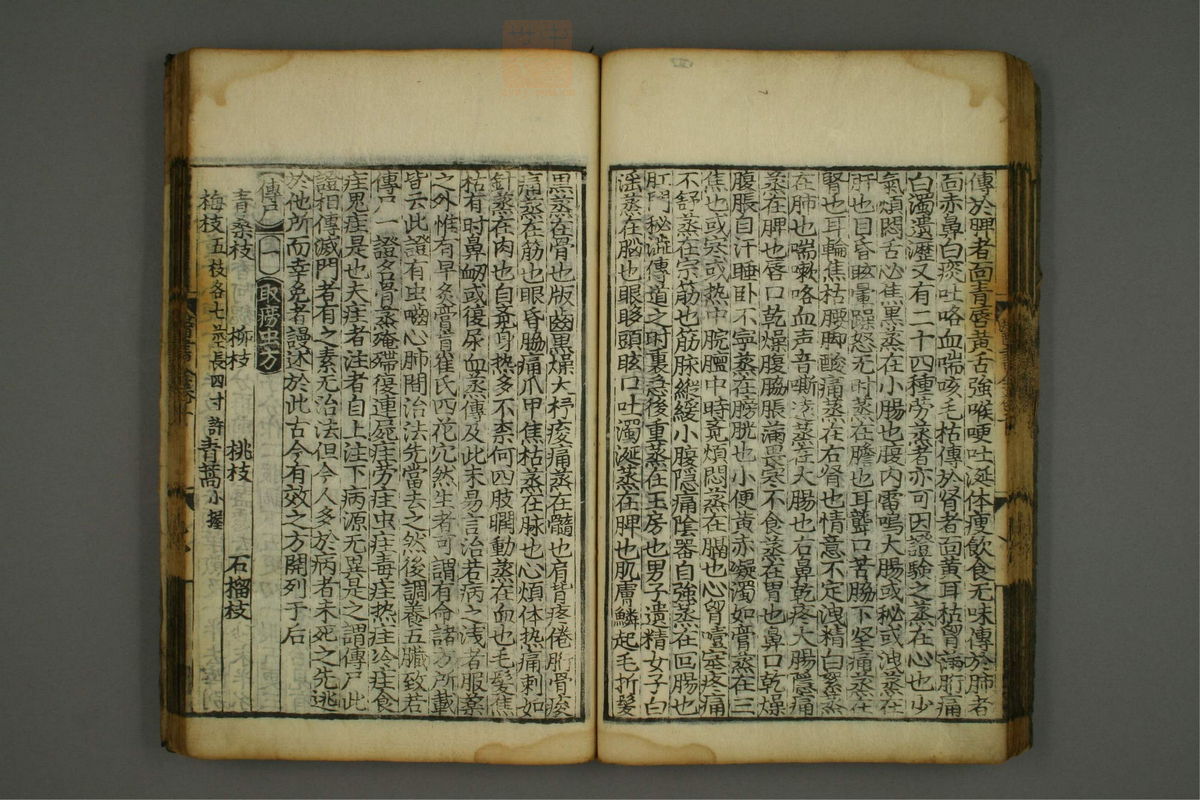 傳於脾者面青唇黃舌強喉哽吐涎体瘦飲食无味傳於肺者
面赤鼻白痰吐咯血喘咳毛枯傳於腎者面黃耳枯胷滿胻痛
白濁遺瀝又有二十四種勞蒸者亦可因證驗之蒸在心也少
氣煩悶舌必焦黒蒸在小腸也腹内雷鳴大腸或秘或洩蒸在
肝也目昏眩暈躁怒无时蒸在膽也耳聾口苦脇下堅痛蒸在
腎也耳輪焦枯腰脚酸痛蒸在右腎也情意不定洩精白蒸
在肺也喘嗽咯血声音嘶蒸在大腸也右鼻乾疼大腸隱痛
蒸在脾也唇口乾燥腹脇脹滿畏寒不食蒸在胃也鼻口乾燥
腹脹自汗睡卧不寧蒸在膀胱也小便黃赤凝濁如膏蒸在三
焦也或寒或热中脘膻中時竟煩悶蒸在膈也心胷噎塞疼痛
不舒蒸在宗筋也筋脉縱緩小腹隱痛陰器自強蒸在回腸也
肛門秘澁傳道之时裏急後重蒸在玉房也男子遺精女子白
淫蒸在脳也眼眵頭眩口吐濁涎蒸在脾也肌膚鱗起毛折髮
黒蒸在骨也版齒黒燥大杼痠痛蒸在髓也肩背疼倦胻骨痠
痛蒸在筋也眼昏脇痛爪甲焦枯蒸在脉也心煩体热痛刺如
針蒸在肉也自竟身热多不柰何四肢瞤動蒸在血也毛髮焦
枯有时鼻衂或復尿血蒸傳及此未易言治若病之浅者服藥
之外惟有早灸膏肓崔氏四花穴然生者可謂有命諸方所載
皆云此證有虫嚙心肺間治法先當去之然後調養五臓致若
傳尸一證名骨蒸殗殜復連屍疰劳疰虫疰毒疰热疰冷疰食
疰鬼疰是也夫疰者注者自上注下病源无異是之謂傳尸此
證相傳滅門者有之素无治法但今人多於病者未死之先逃
於他所而幸免者謾述於此古今有效之方開列于后
傳尸 一 取癆虫方
青桑枝 柳枝 桃枝 石榴枝
梅枝五枝各七莖長四寸許 青蒿小握